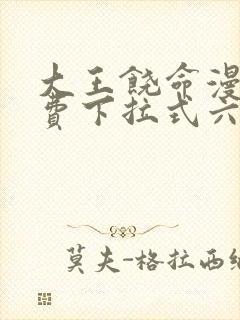 大王饶命漫
费下拉式六
莫夫-格拉西纳